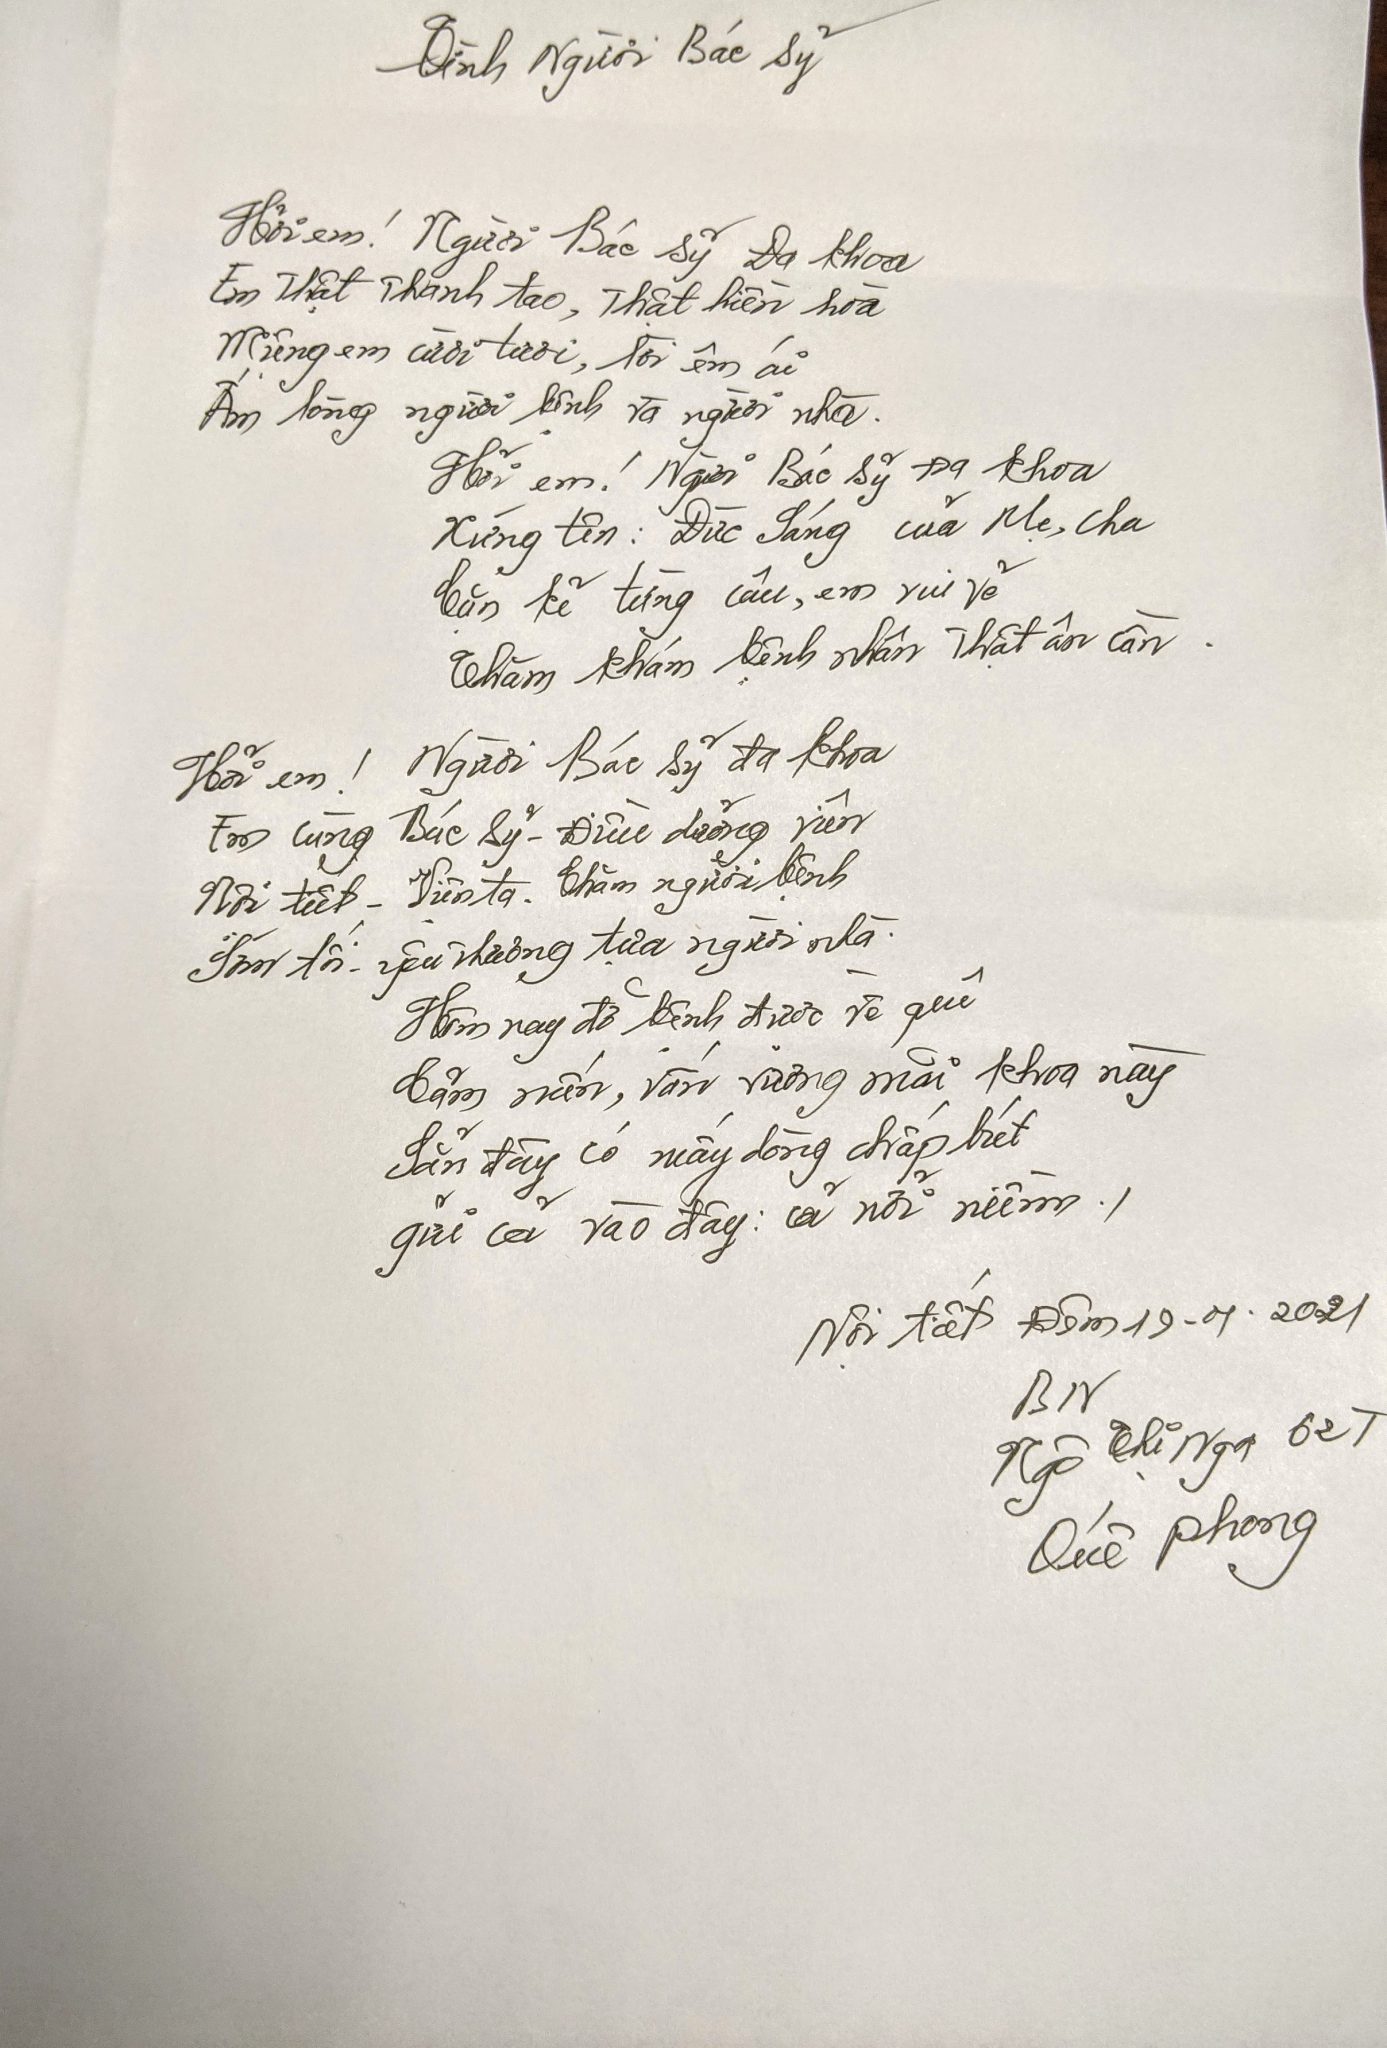 Tình Người Bác Sỹ
Hỡi em! Người Bác sỹ Đa khoa
Em thật thanh tao, thật hiền hòa
Miệng em cười tươi, lời êm ái
Ấm lòng người bệnh và người nhà.
Hỡi em! Người Bác sỹ Đa khoa
Xứng tên: Đức Sáng của Mẹ, cha
Cặn kẽ từng câu, em vui vẻ
Thăm khám bệnh nhân thật ân cần.
Hỡi em! Người Bác sỹ đa khoa
Em cùng Bác sỹ - Điều dưỡng viên
Nội tiết - Viện ta. Thăm người bệnh
Sớm tối - yêu thương tựa người nhà.
Hôm nay đỡ bệnh được về quê
Cảm mến, vấn vương mãi khoa này
Sẵn đây có mấy dòng chắp biết
gửi cả vào đây: cả nỗi niềm ./
Nội tiết Đêm 19 - 2021
BN
Ngô Thị Nga 62T
Quế phong